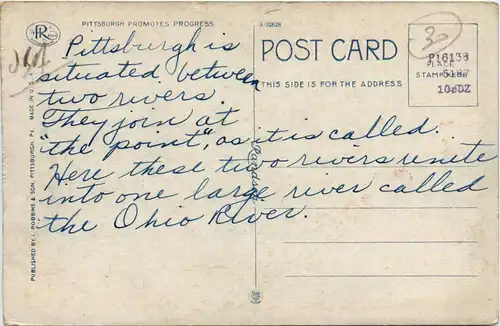 PR
PITTSBURGH PROMOTES PROGRESS
A-92628
30
POST CARD
THIS SIDE IS FOR THE ADDRESS
PLACE
STAMP HERE
P16138
51PB
10¢DZ
Pittsburgh is
situated between
two rivers.
They join at
"the point", as it is called.
Here these two rivers unite
into one large river called
the Ohio River.
PUBLISHED BY I. ROBBINS & SON, PITTSBURGH, PA. MADE IN U.S.A.